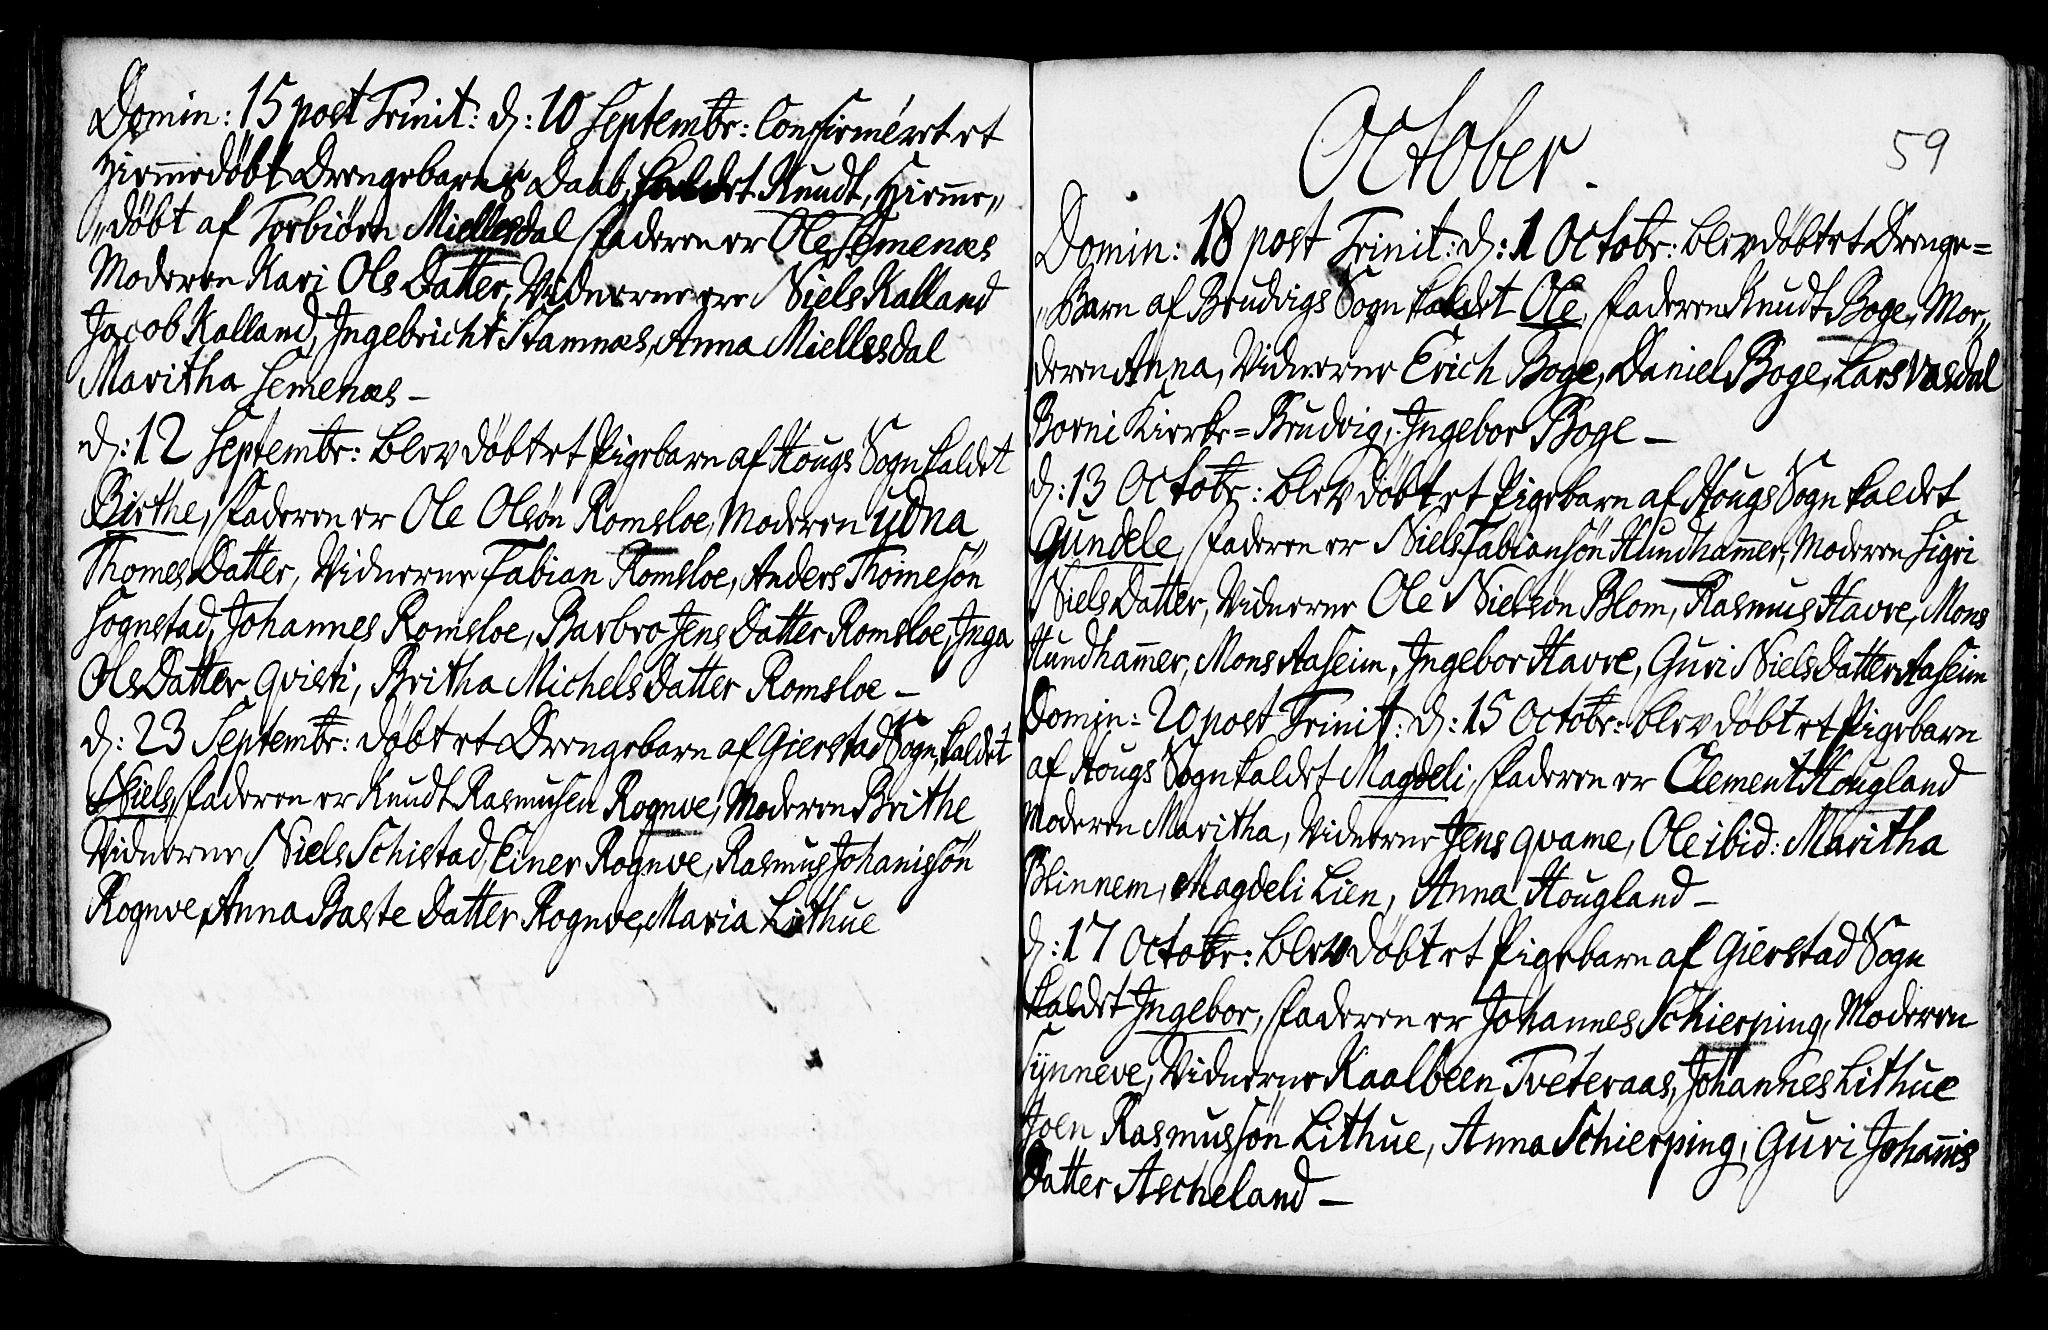 Domin: 15 post Trinit: d: 10 Septembr: Confirmèret et
Hiem̄edøbt Drengebarns Daab, kaldet Knudt, Hiem̄e„
„døbt af Torbiørn Miellesdal Faderen er Ole Semenæs
Moderen Kari Ols Datter, Vidnerne ere Niels Kalland
Jacob Kalland, Ingebricht Stamnæs, Anna Miellesdal
Maritha Semenæs –
d: 12 Septembr: blev døbt et Pigebarn af Hougs Sogn kaldet
Birthe, Faderen er Ole Olsøn Romsloe, Moderen Udna
Thomes Datter, Vidnerne Fabian Romsloe, Anders Thomesøn
Sognstad, Johannes Romsloe, Barbro Jens Datter Romsloe, Inga
Ols Datter Qvisti, Britha Michels Datter Romsloe –
d: 23 Septembr: døbt et Drengebarn af Gierstad Sogn, kaldet
Niels, Faderen er Knudt Rasmusen Rognve, Moderen Brithe
Vidnerne Niels Schistad, Einer Rognve, Rasmus Johanissøn
Rognve, Anna Baste Datter Rognve, Maria Lithue
October.
59
Domin: 18 post Trinit: d: 1 Octobr: blev døbt et Drenge=
„Barn af Brudvigs Sogn kaldet Ole, Faderen Knudt Boge, Mo„
deren Anna, Vidnerne Erich Boge, Daniel Boge, Lars Vasdal
Borni Kirke=Brudvig, Ingebor Boge –
d: 13 Octobr: blev døbt et Pigebarn af Hougs Sogn kaldet
Gundele, Faderen er Niels Fabiansøn Hundham̄er, Moderen Sigri
Niels Datter, Vidnerne Ole Nielsøn Blom, Rasmus Havre, Mons
Hundham̄er, Mons Aaseim, Ingebor Havre, Guri Niels Datter Aaseim
Domin: 20 post Trinit: d: 15 Octobr: blev døbt et Pigebarn
af Hougs Sogn kaldet Magdeli, Faderen er Clement Hougland
Moderen Maritha, Vidnerne Jens Qvame, Ole ibid: Maritha
Blinnem, Magdeli Lien, Anna Hougland –
d: 17 Octobr: blev døbt et Pigebarn af Gierstad Sogn
kaldet Ingebor, Faderen er Johannes Schierping, Moderen
Synneve, Vidnerne Kaalbeen Tveteraas, Johannes Lithue
Joen Rasmussøn Lithue, Anna Schierping, Guri Johan̄is
Datter Ascheland –